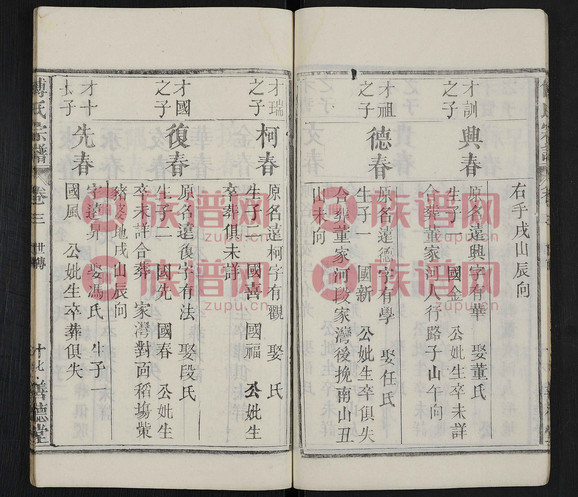 右手戌山辰向
才訓之子
興春
原名遠興字有華 娶董氏
生子一 國金 公妣生卒未詳
合葬董家河人行路子山午向
才祖之子
德春
原名遠德字有學 娶任氏
生子一 國新 公妣生卒俱失
合葬董家河段家灣後挽南山丑
山未向
才瑞之子
柯春
原名遠柯字有觀 娶 氏
生子二 國喜 國福 公妣生
卒葬俱未詳
才國之子
復春
原名遠復字有法 娶段氏
生子二 國先 國春 公妣生
卒未詳合葬 家灣對面稻場
地戌山辰向
才十之子
先春
字遠昇 娶馮氏 生子一
國風 公妣生卒葬俱失
傅氏宗譜 卷三 世傳 十七 善德堂
族谱网
zupu.cn
族谱网
zupu.cn
族谱网
zupu.cn
族谱网
zupu.cn